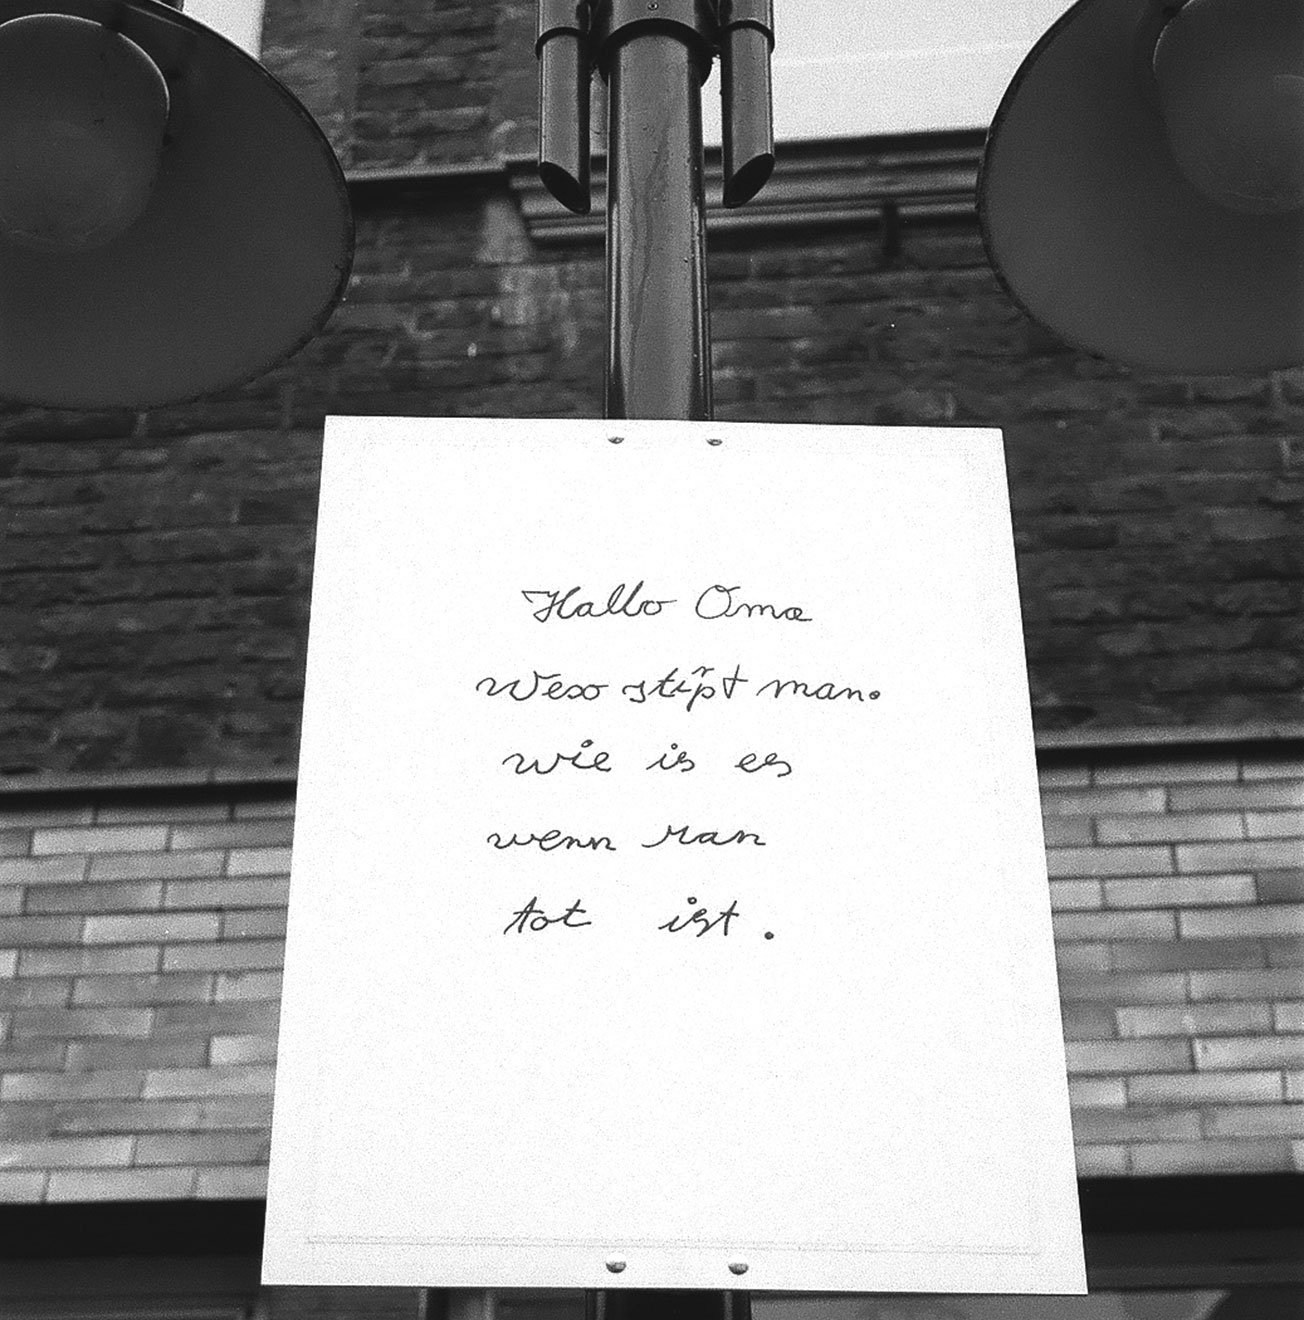 Hallo Oma
Weso stirpt man.
wie is es
wenn man
tot ist.